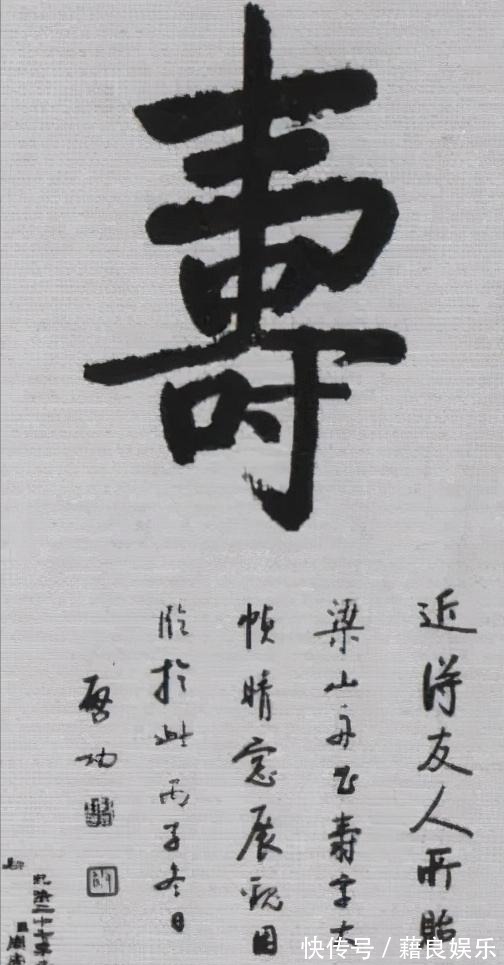 壽
近得友人所貽
梁山舟书壽字大
幀晴窓展观因
临於此丙子冬日
啓功
快传号 / 藉良娱乐